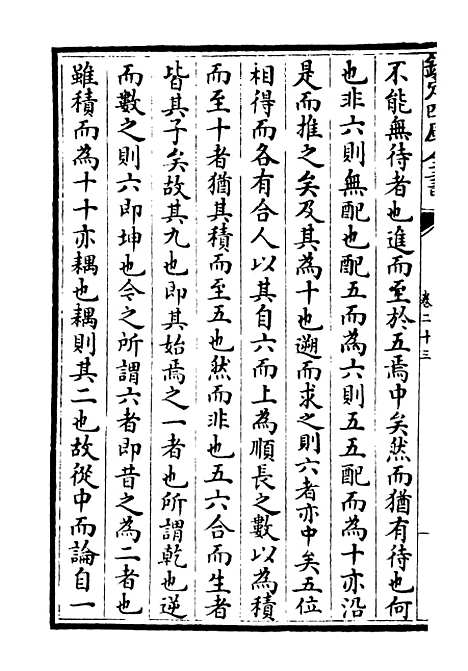 欽定四庫全書
卷二十三
一
不能無待者也進而至於五焉中矣然而猶有待也何
也非六則無配也配五而為六則五五配而為十亦沿
是而推之矣及其為十也遡而求之則六者亦中矣五位
相得而各有合人以其自六而上為順長之數以為積
而至十者猶其積而至五也然而非也五六合而生者
皆其子矣故其九也即其始焉之一者也所謂乾也逆
而數之則六即坤也今之所謂六者即昔之為二者也
雖積而為十十亦耦也耦則其二也故從中而論自一